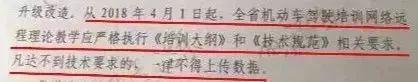 升级改造。从 2018 年 4 月 1 日起，全省机动车驾驶培训网络远
程理论教学应严格执行《培训大纲》和《技术规范》相关要求，
凡达不到技术要求的，一律不得上传数据。